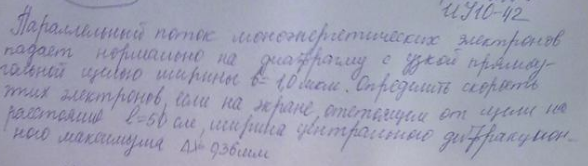 ИУ10-42
Параллельный поток моноэнергетических электронов
падает нормально на диафрагму с узкой прямоу-
гольной щелью ширины b= 1,0 мкм. Определить скорость
этих электронов, если на экране, отстоящем от щели на
расстояние l=50 см, ширина центрального дифракцион-
ного максимума Δx= 0,36 мм